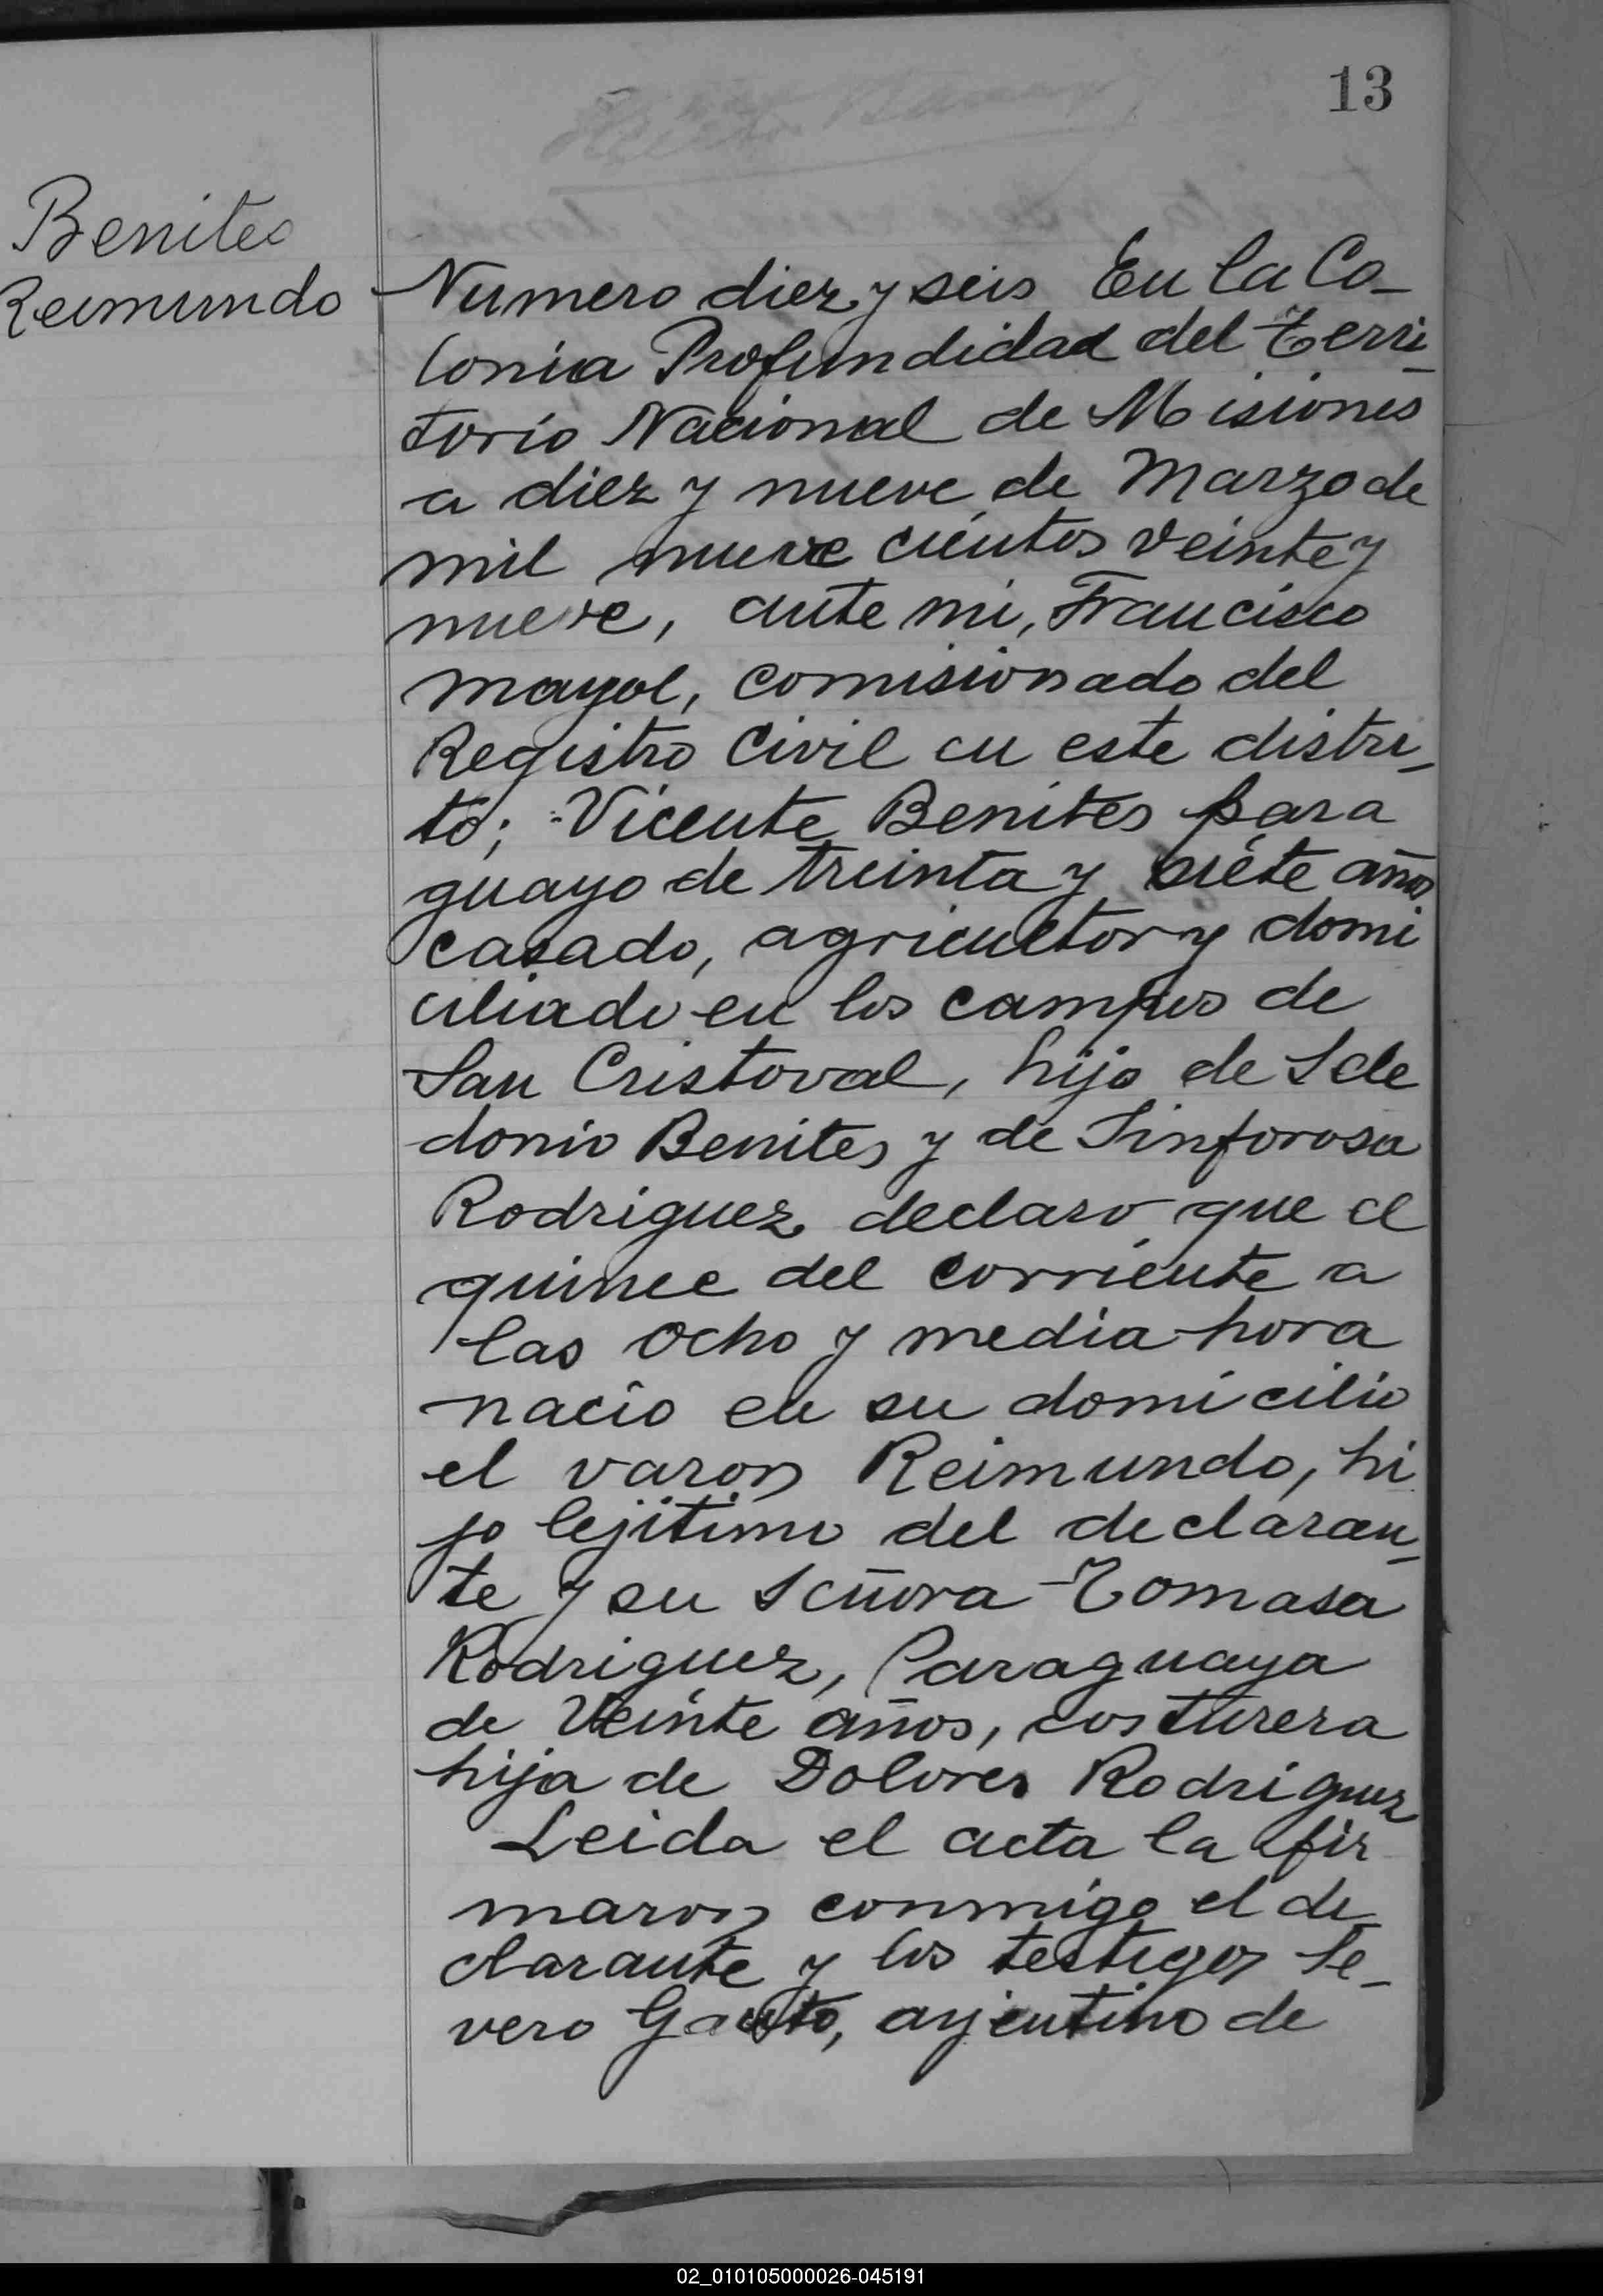 13
Benites
Reimundo
Numero diez y seis En la Co_
lonia Profundidad del Terri_
torio Nacional de Misiones
a diez y nueve de Marzo de
mil nueve cientos veinte y
nueve, ante mi, Francisco
Mayol, comisionado del
Registro Civil en este distri_
to; Vicente Benites para
guayo de treinta y siete años
casado, agricultor y domi
ciliado en los campos de
San Cristoval, hijo de Sele
donio Benites y de Sinforosa
Rodriguez declaro que el
quince del corriente a
las ocho y media hora
nacio en su domicilio
el varon Reimundo, hi
jo lejitimo del declaran_
te y su Señora Tomasa
Rodriguez, Paraguaya
de Veinte años, costurera
hija de Dolores Rodriguez
Leida el acta la fir
maron conmigo el de_
clarante y los testigos Se_
vero Gauto, arjentino de
02_010105000026-045191